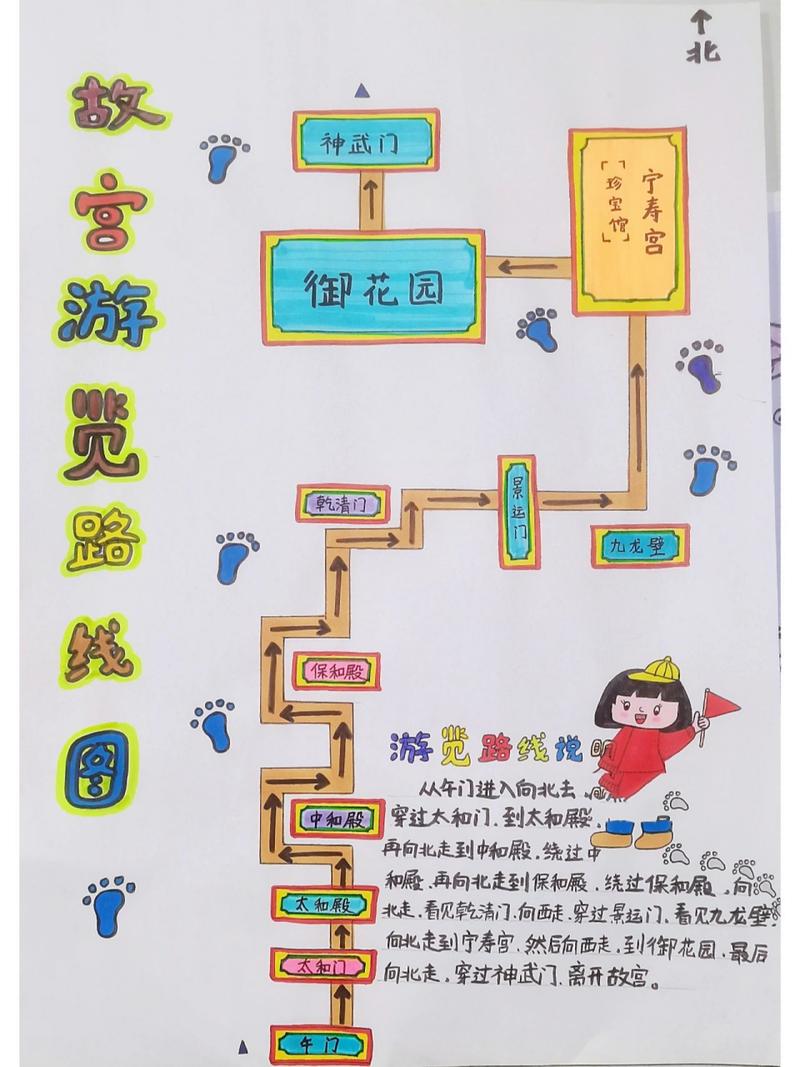 北
故宫游览路线图
神武门
宁寿宫
「珍宝馆」
御花园
景运门
乾清门
九龙壁
保和殿
中和殿
太和殿
太和门
午门
游览路线说明
从午门进入向北去、
穿过太和门、到太和殿、
再向北走到中和殿、绕过中
和殿、再向北走到保和殿、绕过保和殿、向
北走、看见乾清门、向西走、穿过景运门、看见九龙壁、
向北走到宁寿宫、然后向西走、到御花园、最后
向北走、穿过神武门、离开故宫。